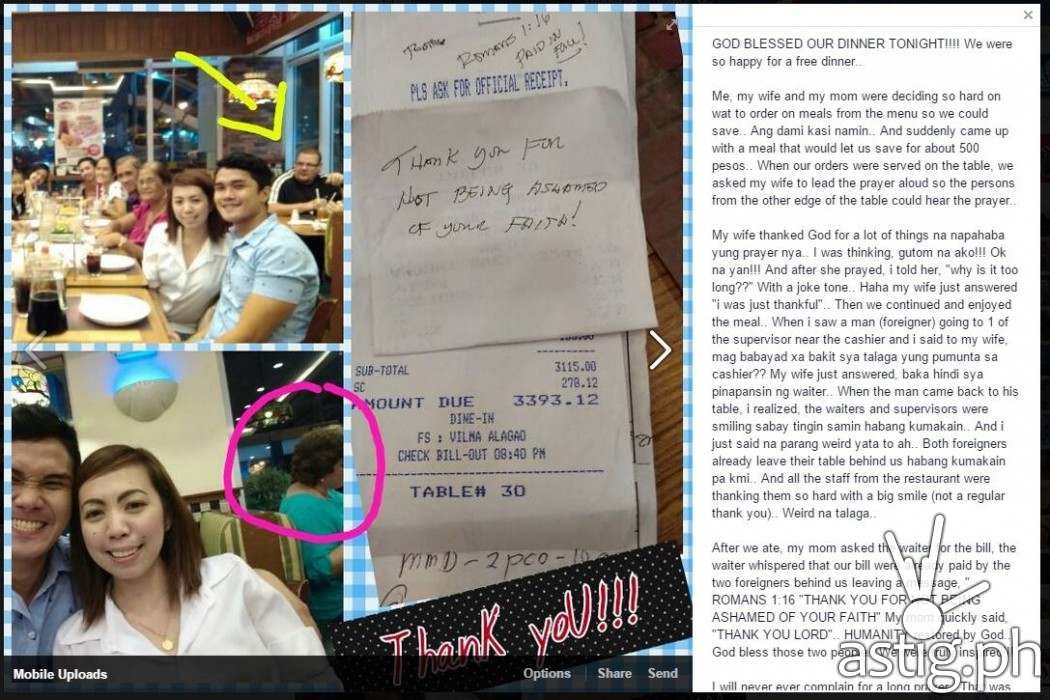 Romans 1:16
PAID IN
FULL!
PLS ASK FOR OFFICIAL RECEIPT.
THANK YOU FOR
NOT BEING ASHAMED
OF YOUR FAITH!
SUB-TOTAL 3115.00
SC 278.12
AMOUNT DUE 3393.12
DINE-IN
FS : VILMA ALAGAO
CHECK BILL-OUT 08:40 PM
TABLE# 30
Thank yoU!!!
Mobile Uploads
Options Share Send
GOD BLESSED OUR DINNER TONIGHT!!!! We were
so happy for a free dinner..
Me, my wife and my mom were deciding so hard on
wat to order on meals from the menu so we could
save.. Ang dami kasi namin.. And suddenly came up
with a meal that would let us save for about 500
pesos.. When our orders were served on the table, we
asked my wife to lead the prayer aloud so the persons
from the other edge of the table could hear the prayer..
My wife thanked God for a lot of things na napahaba
yung prayer nya.. I was thinking, gutom na ako!!! Ok
na yan!!! And after she prayed, i told her, "why is it too
long??" With a joke tone.. Haha my wife just answered
"i was just thankful".. Then we continued and enjoyed
the meal.. When i saw a man (foreigner) going to 1 of
the supervisor near the cashier and i said to my wife,
mag babayad xa bakit sya talaga yung pumunta sa
cashier?? My wife just answered, baka hindi sya
pinapansin ng waiter.. When the man came back to his
table, i realized, the waiters and supervisors were
smiling sabay tingin samin habang kumakain.. And i
just said na parang weird yata to ah.. Both foreigners
already leave their table behind us habang kumakain
pa kmi.. And all the staff from the restaurant were
thanking them so hard with a big smile (not a regular
thank you).. Weird na talaga..
After we ate, my mom asked the waiter for the bill, the
waiter whispered that our bill were already paid by the
two foreigners behind us leaving a message, "
ROMANS 1:16 "THANK YOU FOR NOT BEING
ASHAMED OF YOUR FAITH" My mom quickly said,
"THANK YOU LORD".. HUMANITY restored by God..
God bless those two people.. We were inspired
I will never ever complain for a long prayer. That was
astig.ph